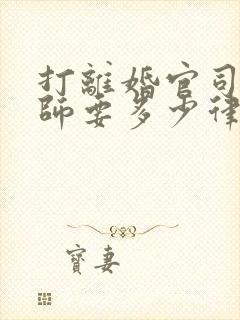 打離婚官司
師要多少律
寶妻